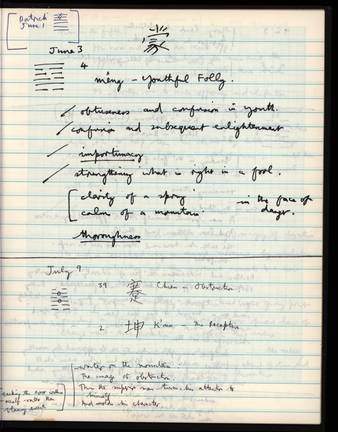 Patrick
June 1
蒙
June 3
4
mêng - Youthful Folly.
obtuseness and confusion in youth.
confusion and subsequent enlightenment
importunacy
strengthening what is right in a fool.
clarity of a spring
calm of a mountain.
in the face of
danger.
thoroughness
July 9
39 蹇 Chien - Obstruction
2 坤 K'un - The Receptive
water on the mountain:
The image of obstruction.
Thus the superior man turns his attention to
himself
And molds his character.
seeking the error within